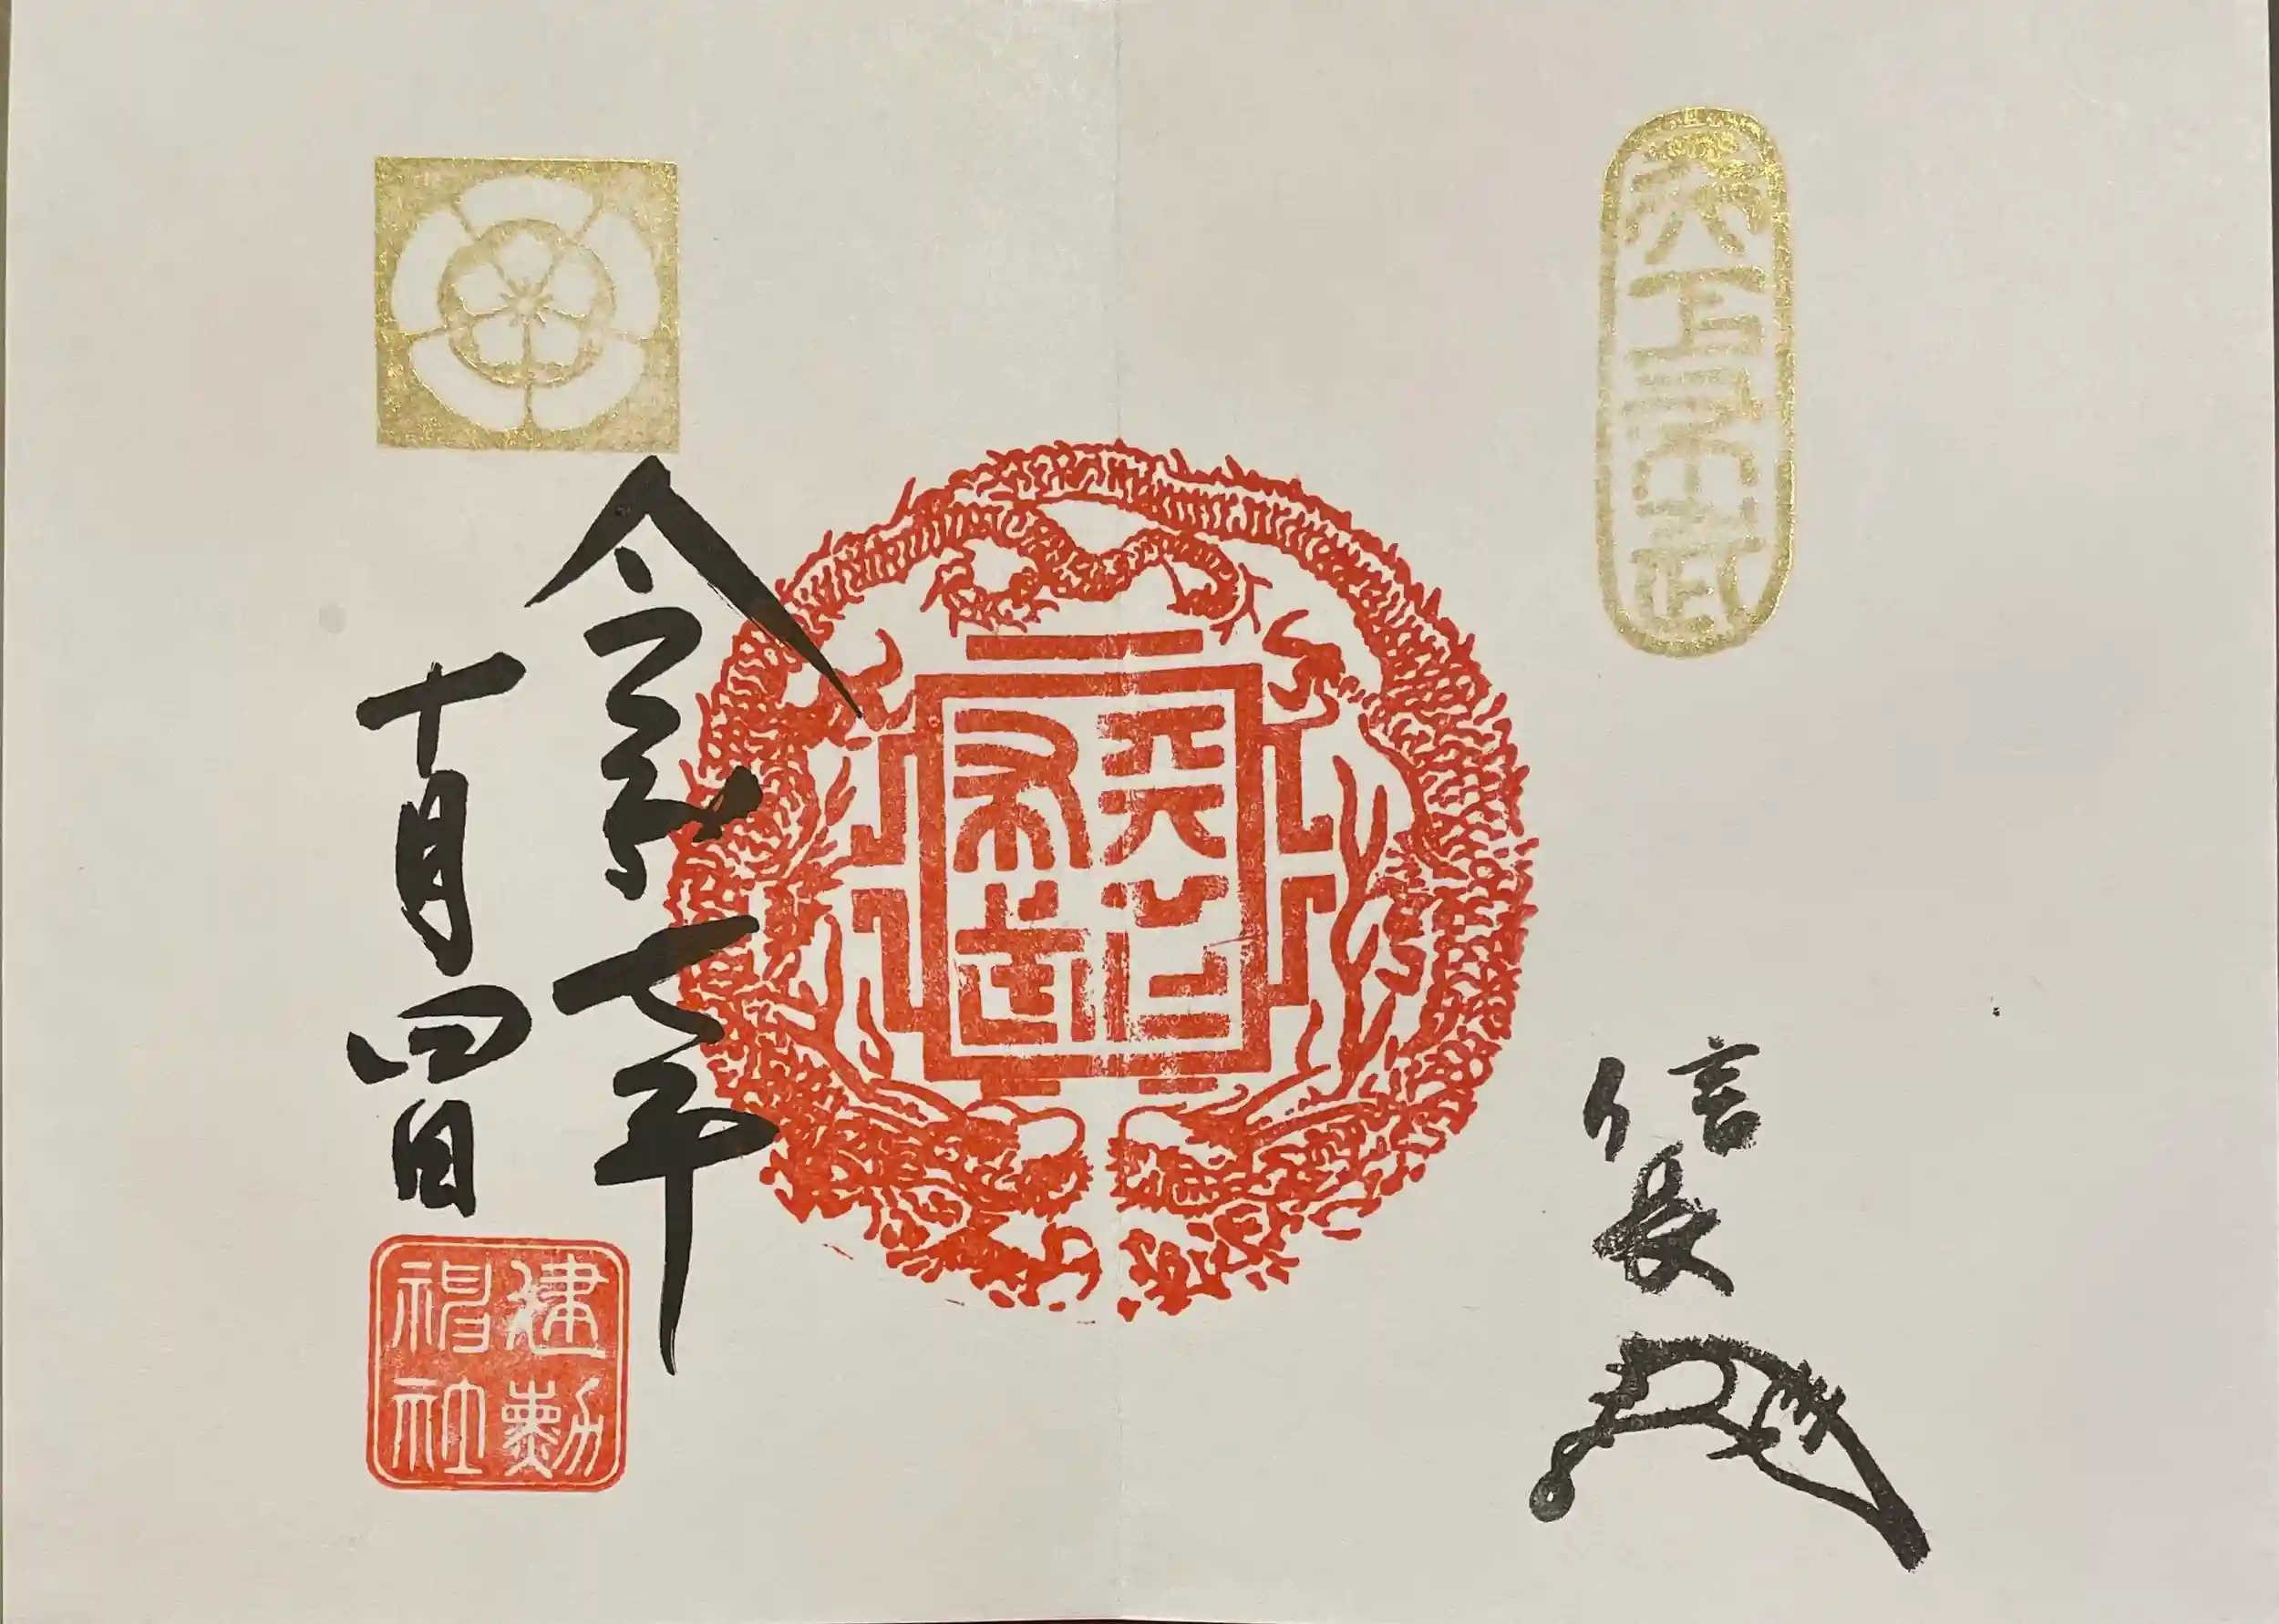 天下布武
信長
天下
布武
令和七年
十月四日
建勲
神社